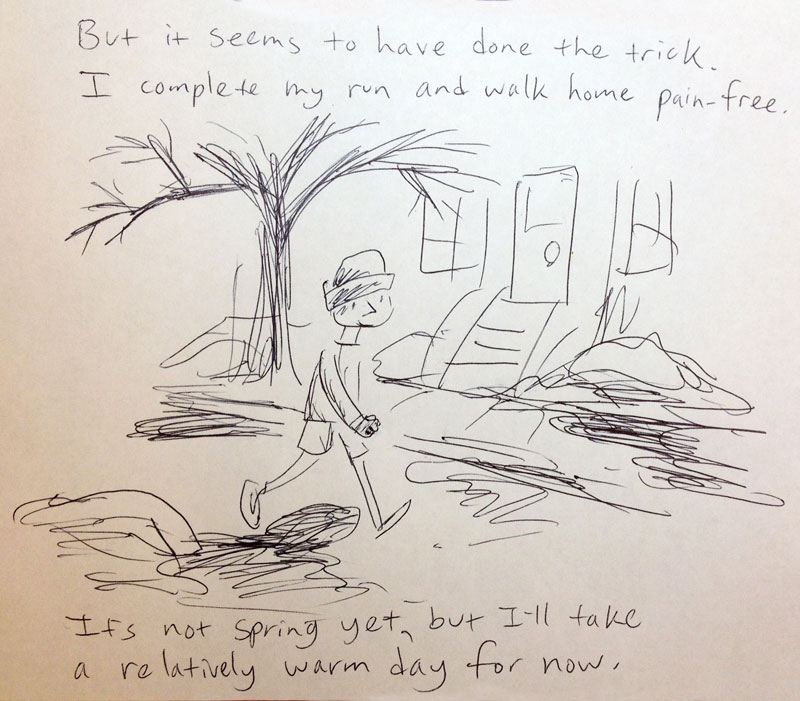 But it seems to have done the trick.
I complete my run and walk home pain-free.
It's not spring yet, but I'll take
a relatively warm day for now.